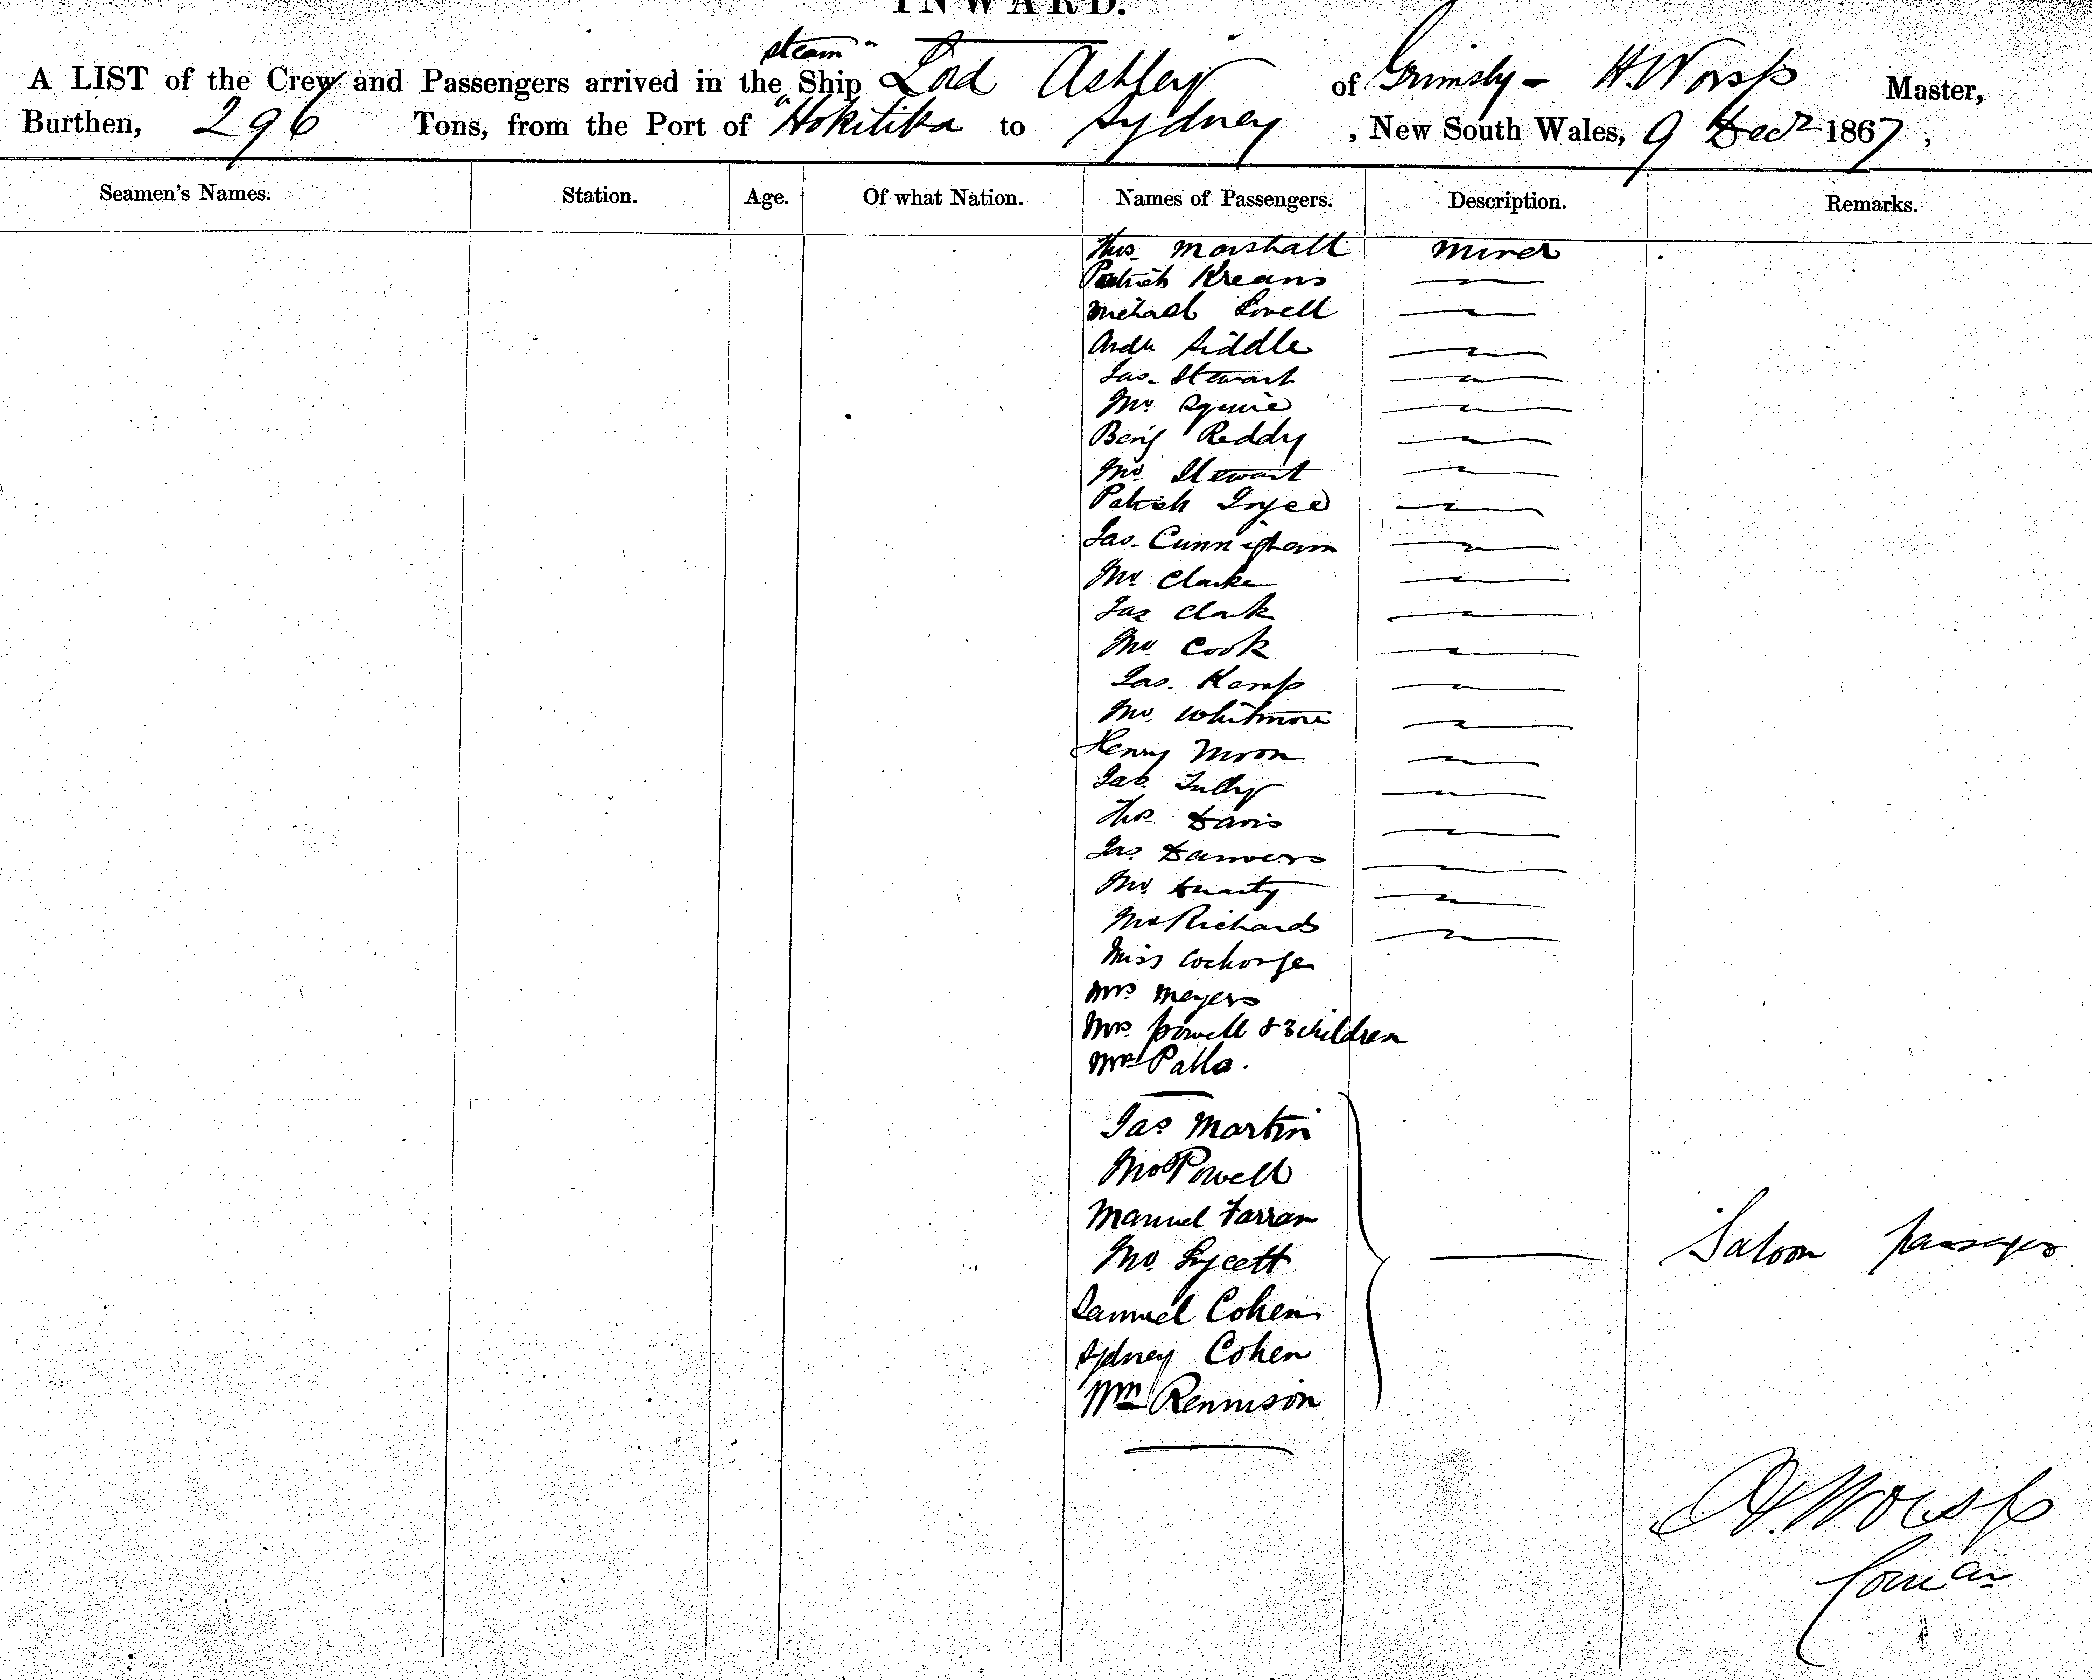 INWARD.
steam
A LIST of the Crew and Passengers arrived in the Ship Lord Ashley of Grimsby - H. Worsp Master,
Burthen, 296 Tons, from the Port of Hokitika to Sydney, New South Wales, 9 Decr 1867,
Seamen's Names. Station. Age. Of what Nation. Names of Passengers. Description. Remarks.
Thos Marshall Miner
Patrick Kreans
Michael Lovell
Andw Siddle
Jas. Stewart
Jno Squire
Benj Reddy
Jno Stewart
Patrick Joyce
Jas. Cunnigham
Jno Clarke
Jas Clark
Jno Cook
Jas. Kemp
Jno. Whitmore
Henry Moon
Jas. Tully
Thos. Davis
Jas Danvers
Jno
Jno Richards
Miss
Mrs Meyers
Mrs Powell & 3 children
Mrs
Jas Martin
Jno Powell
Manuel Farran
Jno. Lycett
Samuel Cohen
Saloon passengers
Sydney Cohen
Wm Rennison
H. Worsp